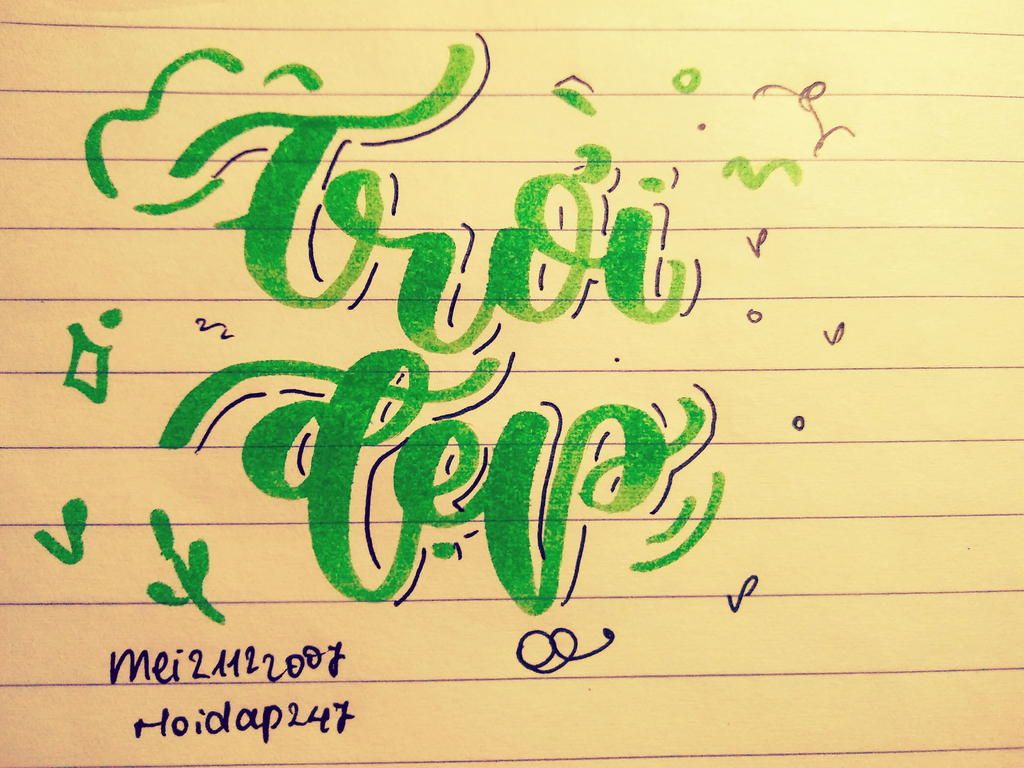 Trời
đẹp
Mei21122007
Hoidap247